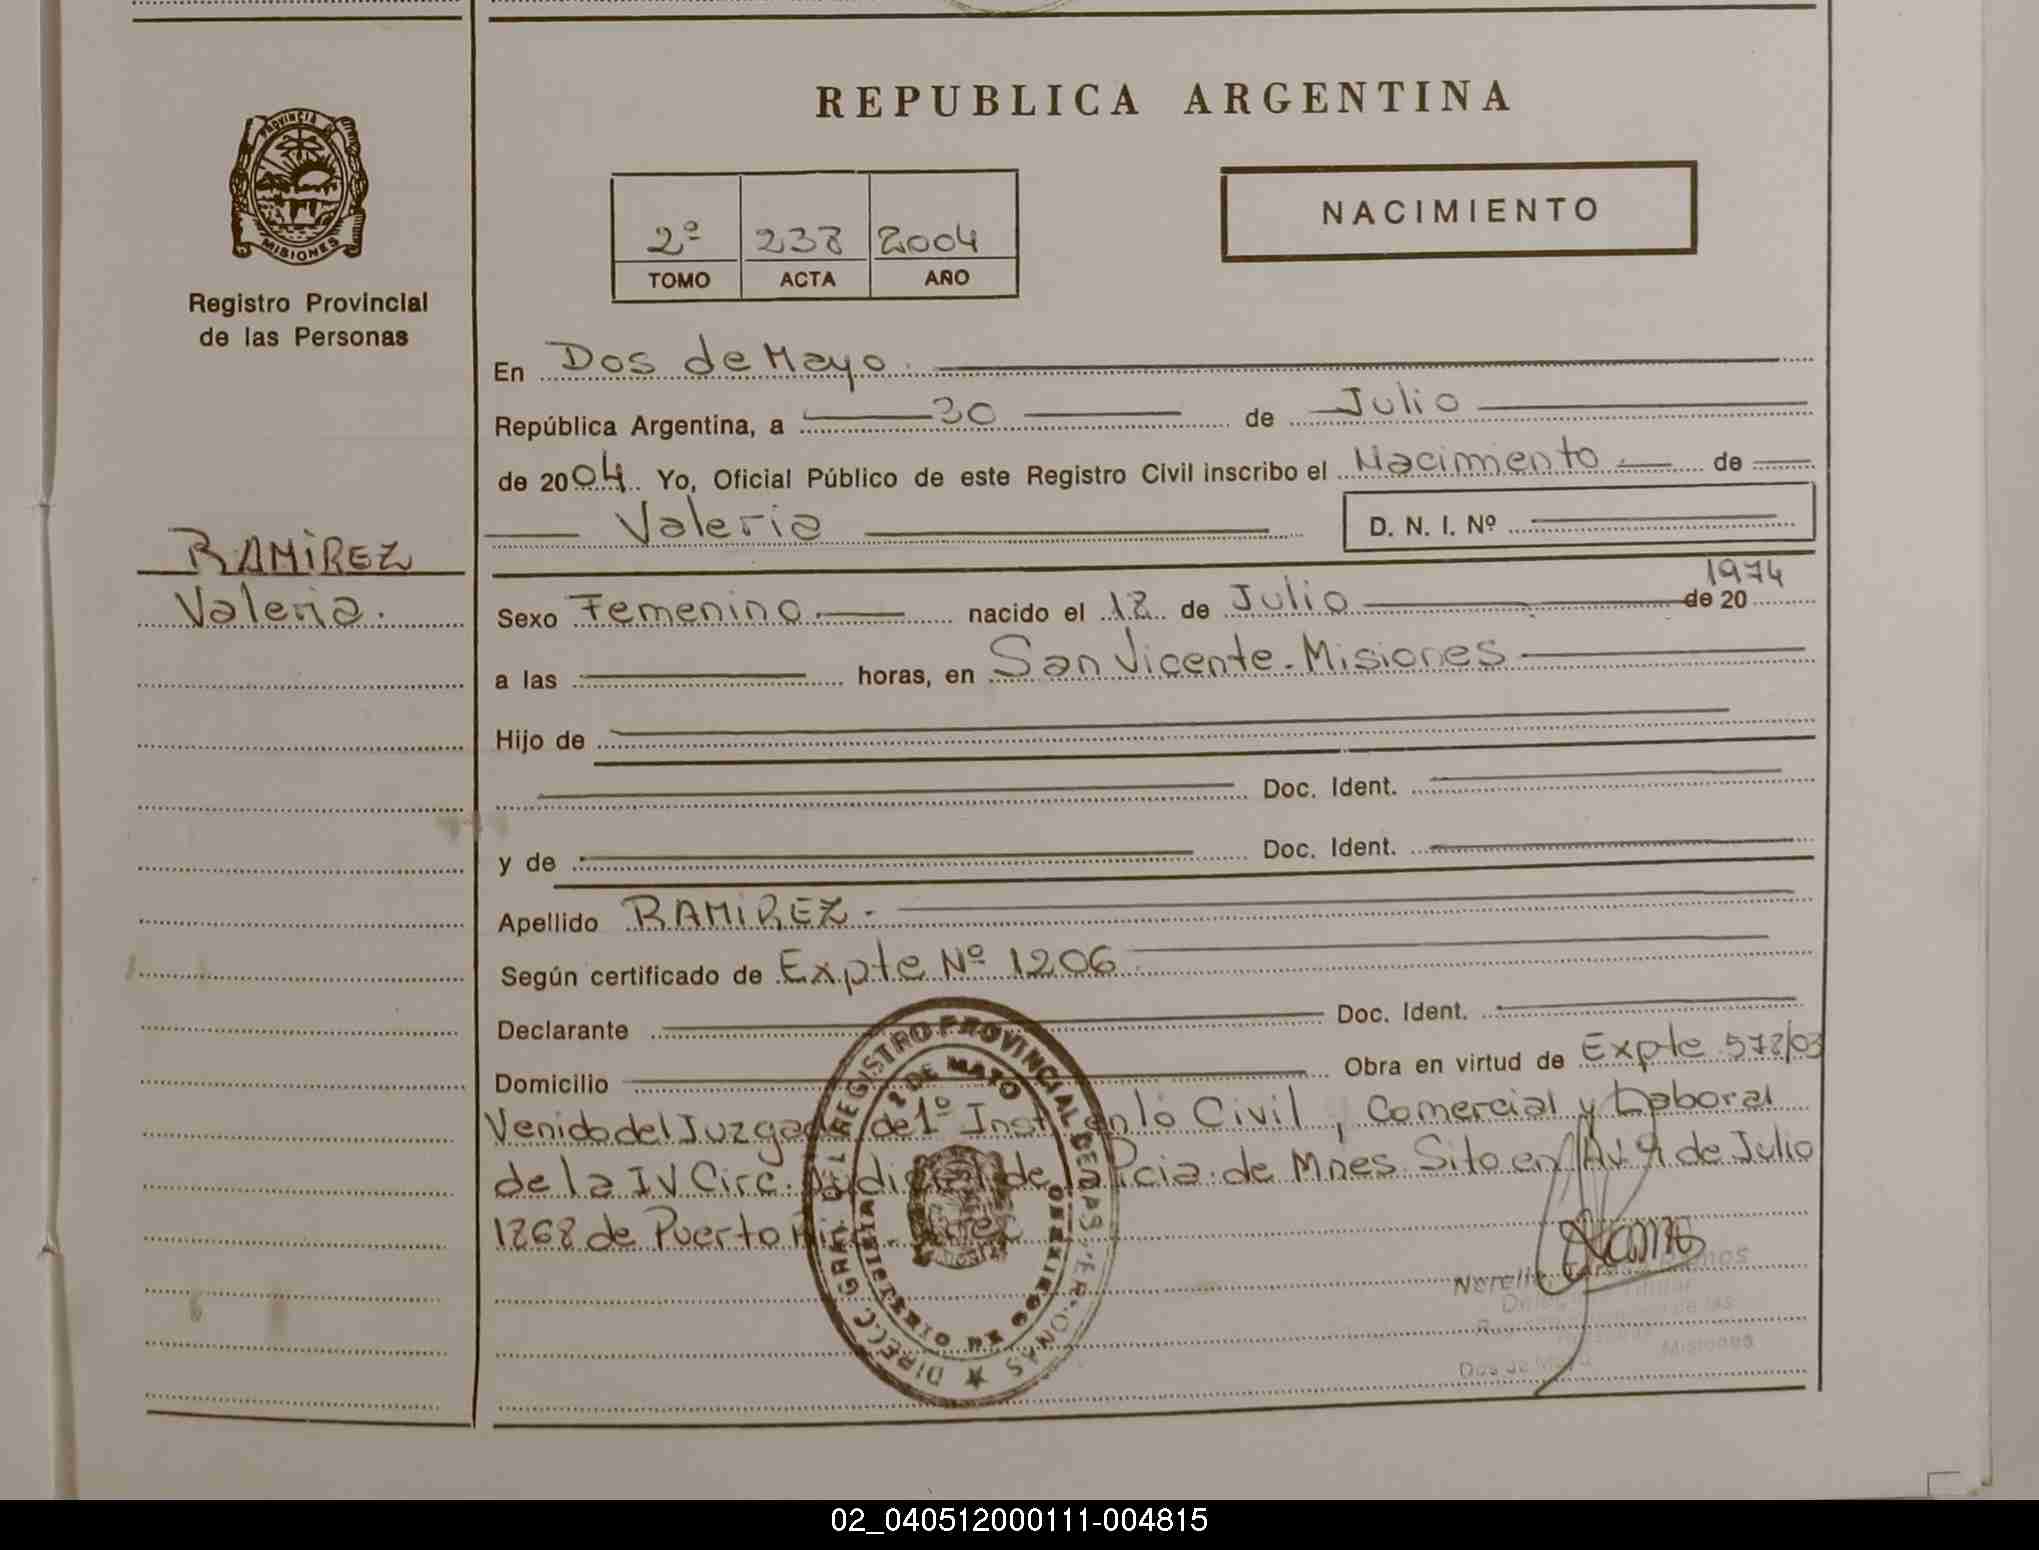 REPUBLICA ARGENTINA
PROVINCIA DE
MISIONES
Registro Provincial
de las Personas
NACIMIENTO
2º 238 2004
TOMO ACTA AÑO
En Dos de Mayo
República Argentina, a 30 de Julio
de 2004 Yo, Oficial Público de este Registro Civil inscribo el Nacimiento de
Valeria D. N. I. Nº
RAMIREZ
Valeria.
1974
Sexo Femenino nacido el 18 de Julio de 20
a las horas, en San Vicente. Misiones
Hijo de
Doc. Ident.
y de Doc. Ident.
Apellido RAMIREZ.
Según certificado de Expte Nº 1206
Declarante Doc. Ident.
Domicilio Obra en virtud de Expte 578/03
Venido del Juzgado de 1º Inst en lo Civil, Comercial y Laboral
de la IV Circ. Judicial de la Pcia. de Mnes. Sito en Av. 9 de Julio
1268 de Puerto
DIRECC. GRAL. DEL REGISTRO PROVINCIAL DE LAS PERSONAS
2 DE MAYO
MINISTERIO DE GOBIERNO
Dos de Mayo Misiones
02_040512000111-004815